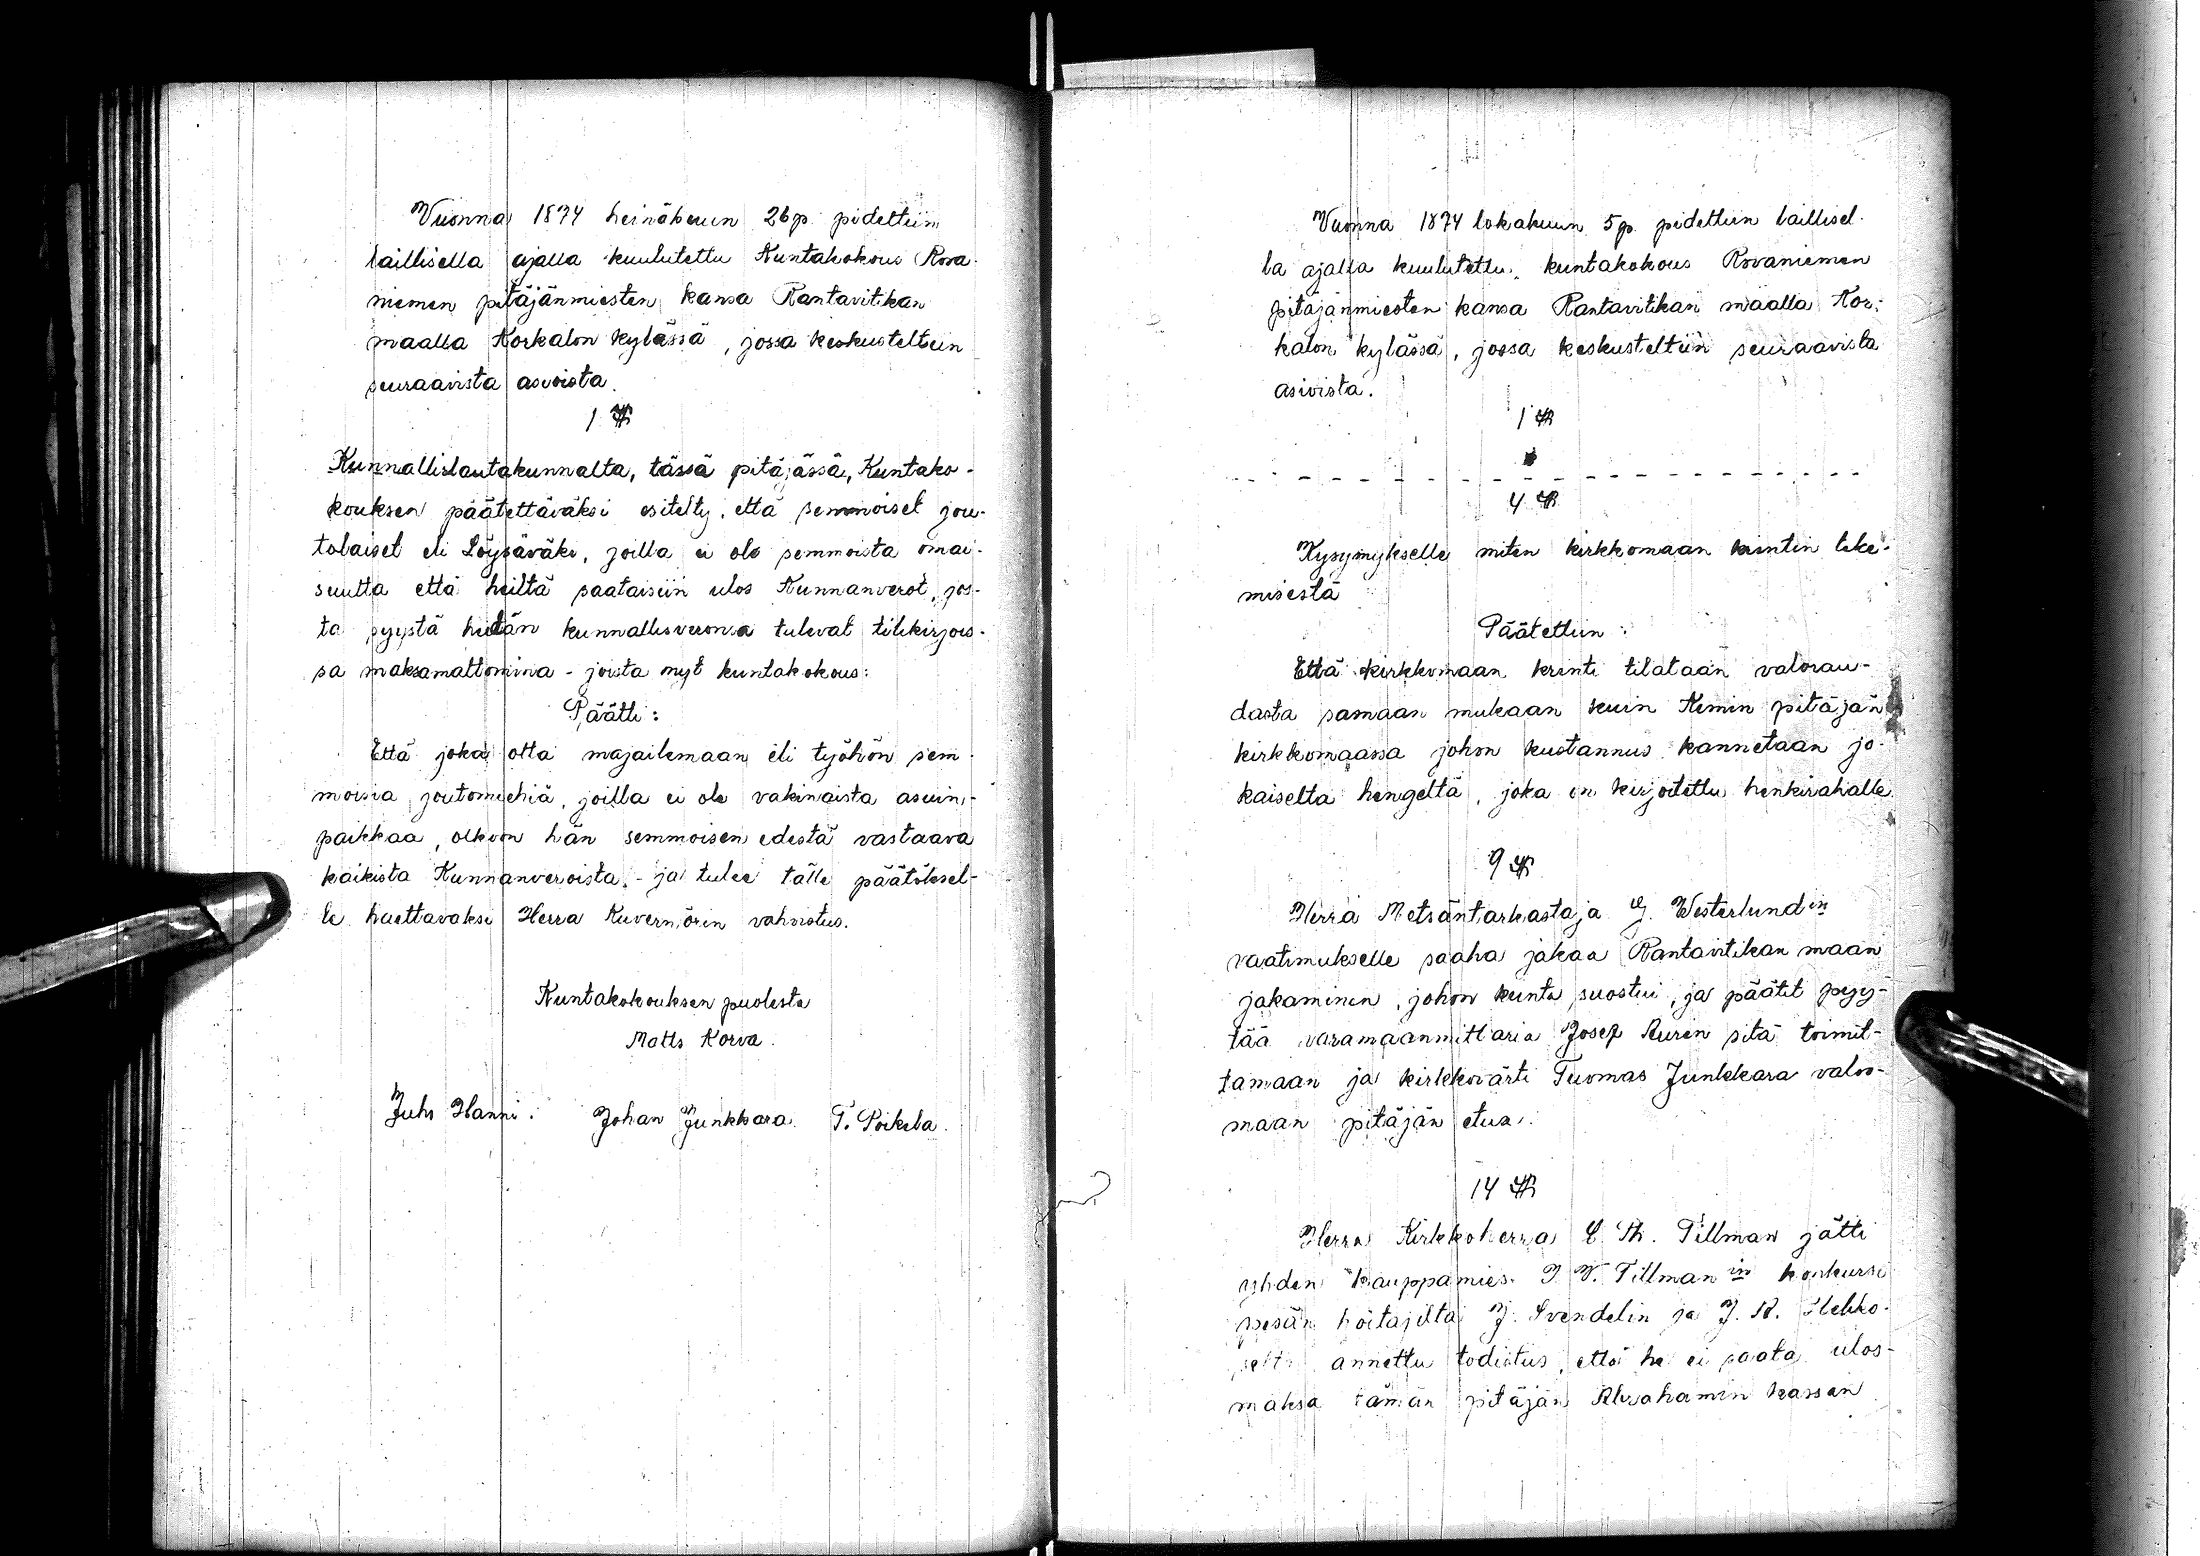 Vuonna 1874 heinäkuun 26 p. pidettiin
laillisella ajalla kuulutettu Kuntakokous Rova-
niemen pitäjänmiesten kansa Rantavitikan
maalla Korkalon kylässä, jossa keskusteltiin
seuraavista asioista.
1 §
Kunnallislautakunnalta, tässä pitäjässä, Kuntako-
kouksen päätettäväksi esitelty, että semmoiset jou-
tolaiset eli Löysäväki, joilla ei ole semmoista omai-
suutta että heiltä saataisiin ulos Kunnanverot, jos-
ta syystä heidän kunnallisveronsa tulevat tilikirjois-
sa maksamattomina - joista nyt kuntakokous:
Päätti:
Että joka otta majailemaan eli työhön sem-
moisia joutomiehiä, joilla ei ole vakinaista asuin-
paikkaa, olkoon hän semmoisen edestä vastaava
kaikista Kunnanveroista, - ja tulee tälle päätöksel-
le haettavaksi Herra Kuvernörin vahvistus.
Kuntakokouksen puolesta
Matts Korva.
Juhs Hanni. Johan Junkkara. T. Poikela.
Vuonna 1874 lokakuun 5 p. pidettiin laillisel-
la ajalla kuulutettu kuntakokous Rovaniemen
pitäjänmiesten kansa Rantavitikan maalla Kor-
kalon kylässä, jossa keskusteltiin seuraavista
asioista.
1 §
- - - - - - - - - - - - - - - - - -
4 §
Kysymykselle miten kirkkomaan krintin teke-
misestä
Päätettiin:
Että kirkkomaan krinti tilataan valorau-
dasta samaan mukaan kuin Kemin pitäjän
kirkkomaassa johon kustannus kannetaan jo-
kaiselta hengeltä, joka on kirjoitettu henkirahalle
9 §
Herra Metsäntarkastaja G. Westerlundin
vaatimukselle saaha jakaa Rantavitikan maan
jakaminen, johon kunta suostui, ja päätit pyy-
tää varamaanmittaria Josep Ruren sitä toimit-
tamaan ja kirkkovärti Tuomas Junkkara valvo-
maan pitäjän etua.
14 §
Herra Kirkkoherra C. Th. Tillman jätti
yhden kauppamies J. W. Tillman in konkurssi
pesän hoitajilta J. Svendelin ja J. K. Heikko-
selta annettu todistus, että he ei saata ulos-
maksa tämän pitäjän Abrahamin kassan